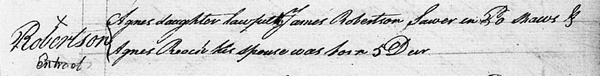 Robertson
Extract
Agnes daughter lawful to James Robertson Sawer in Po shaws &
Agnes his spouse was born 5 Decr